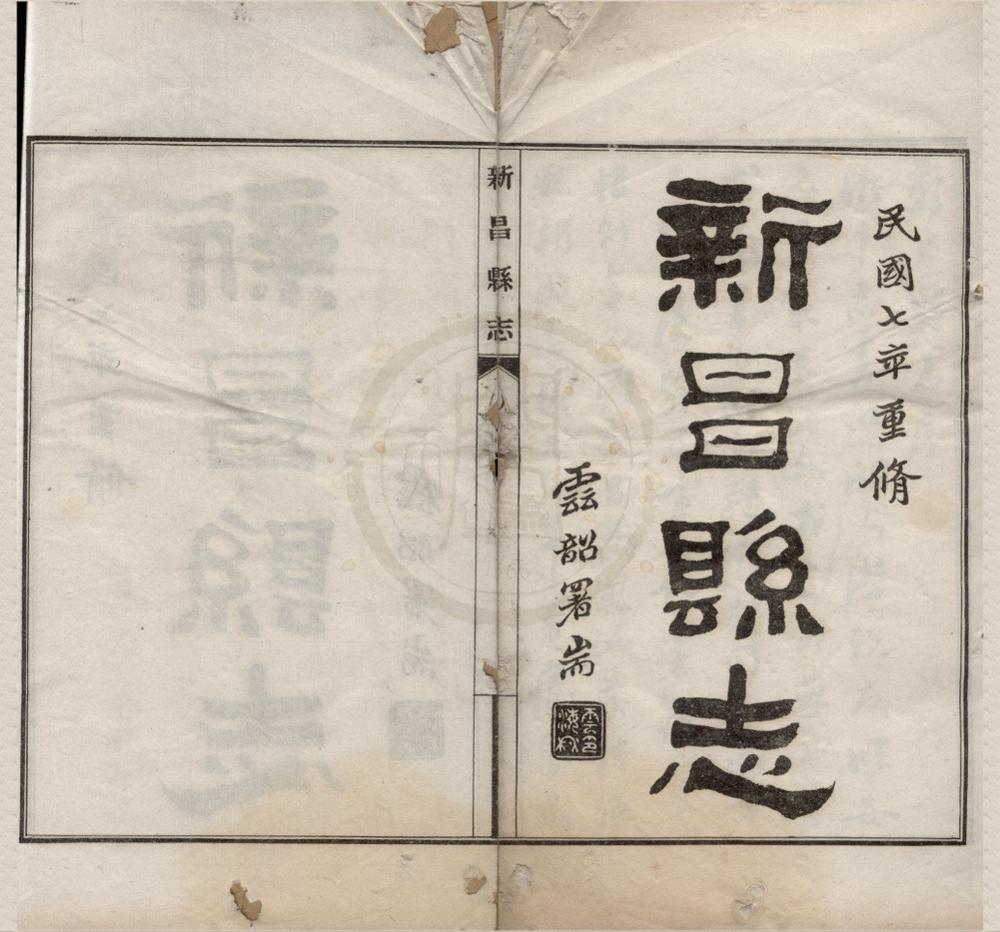 民國七年重脩
新昌縣志
雲韶署耑
新昌縣志